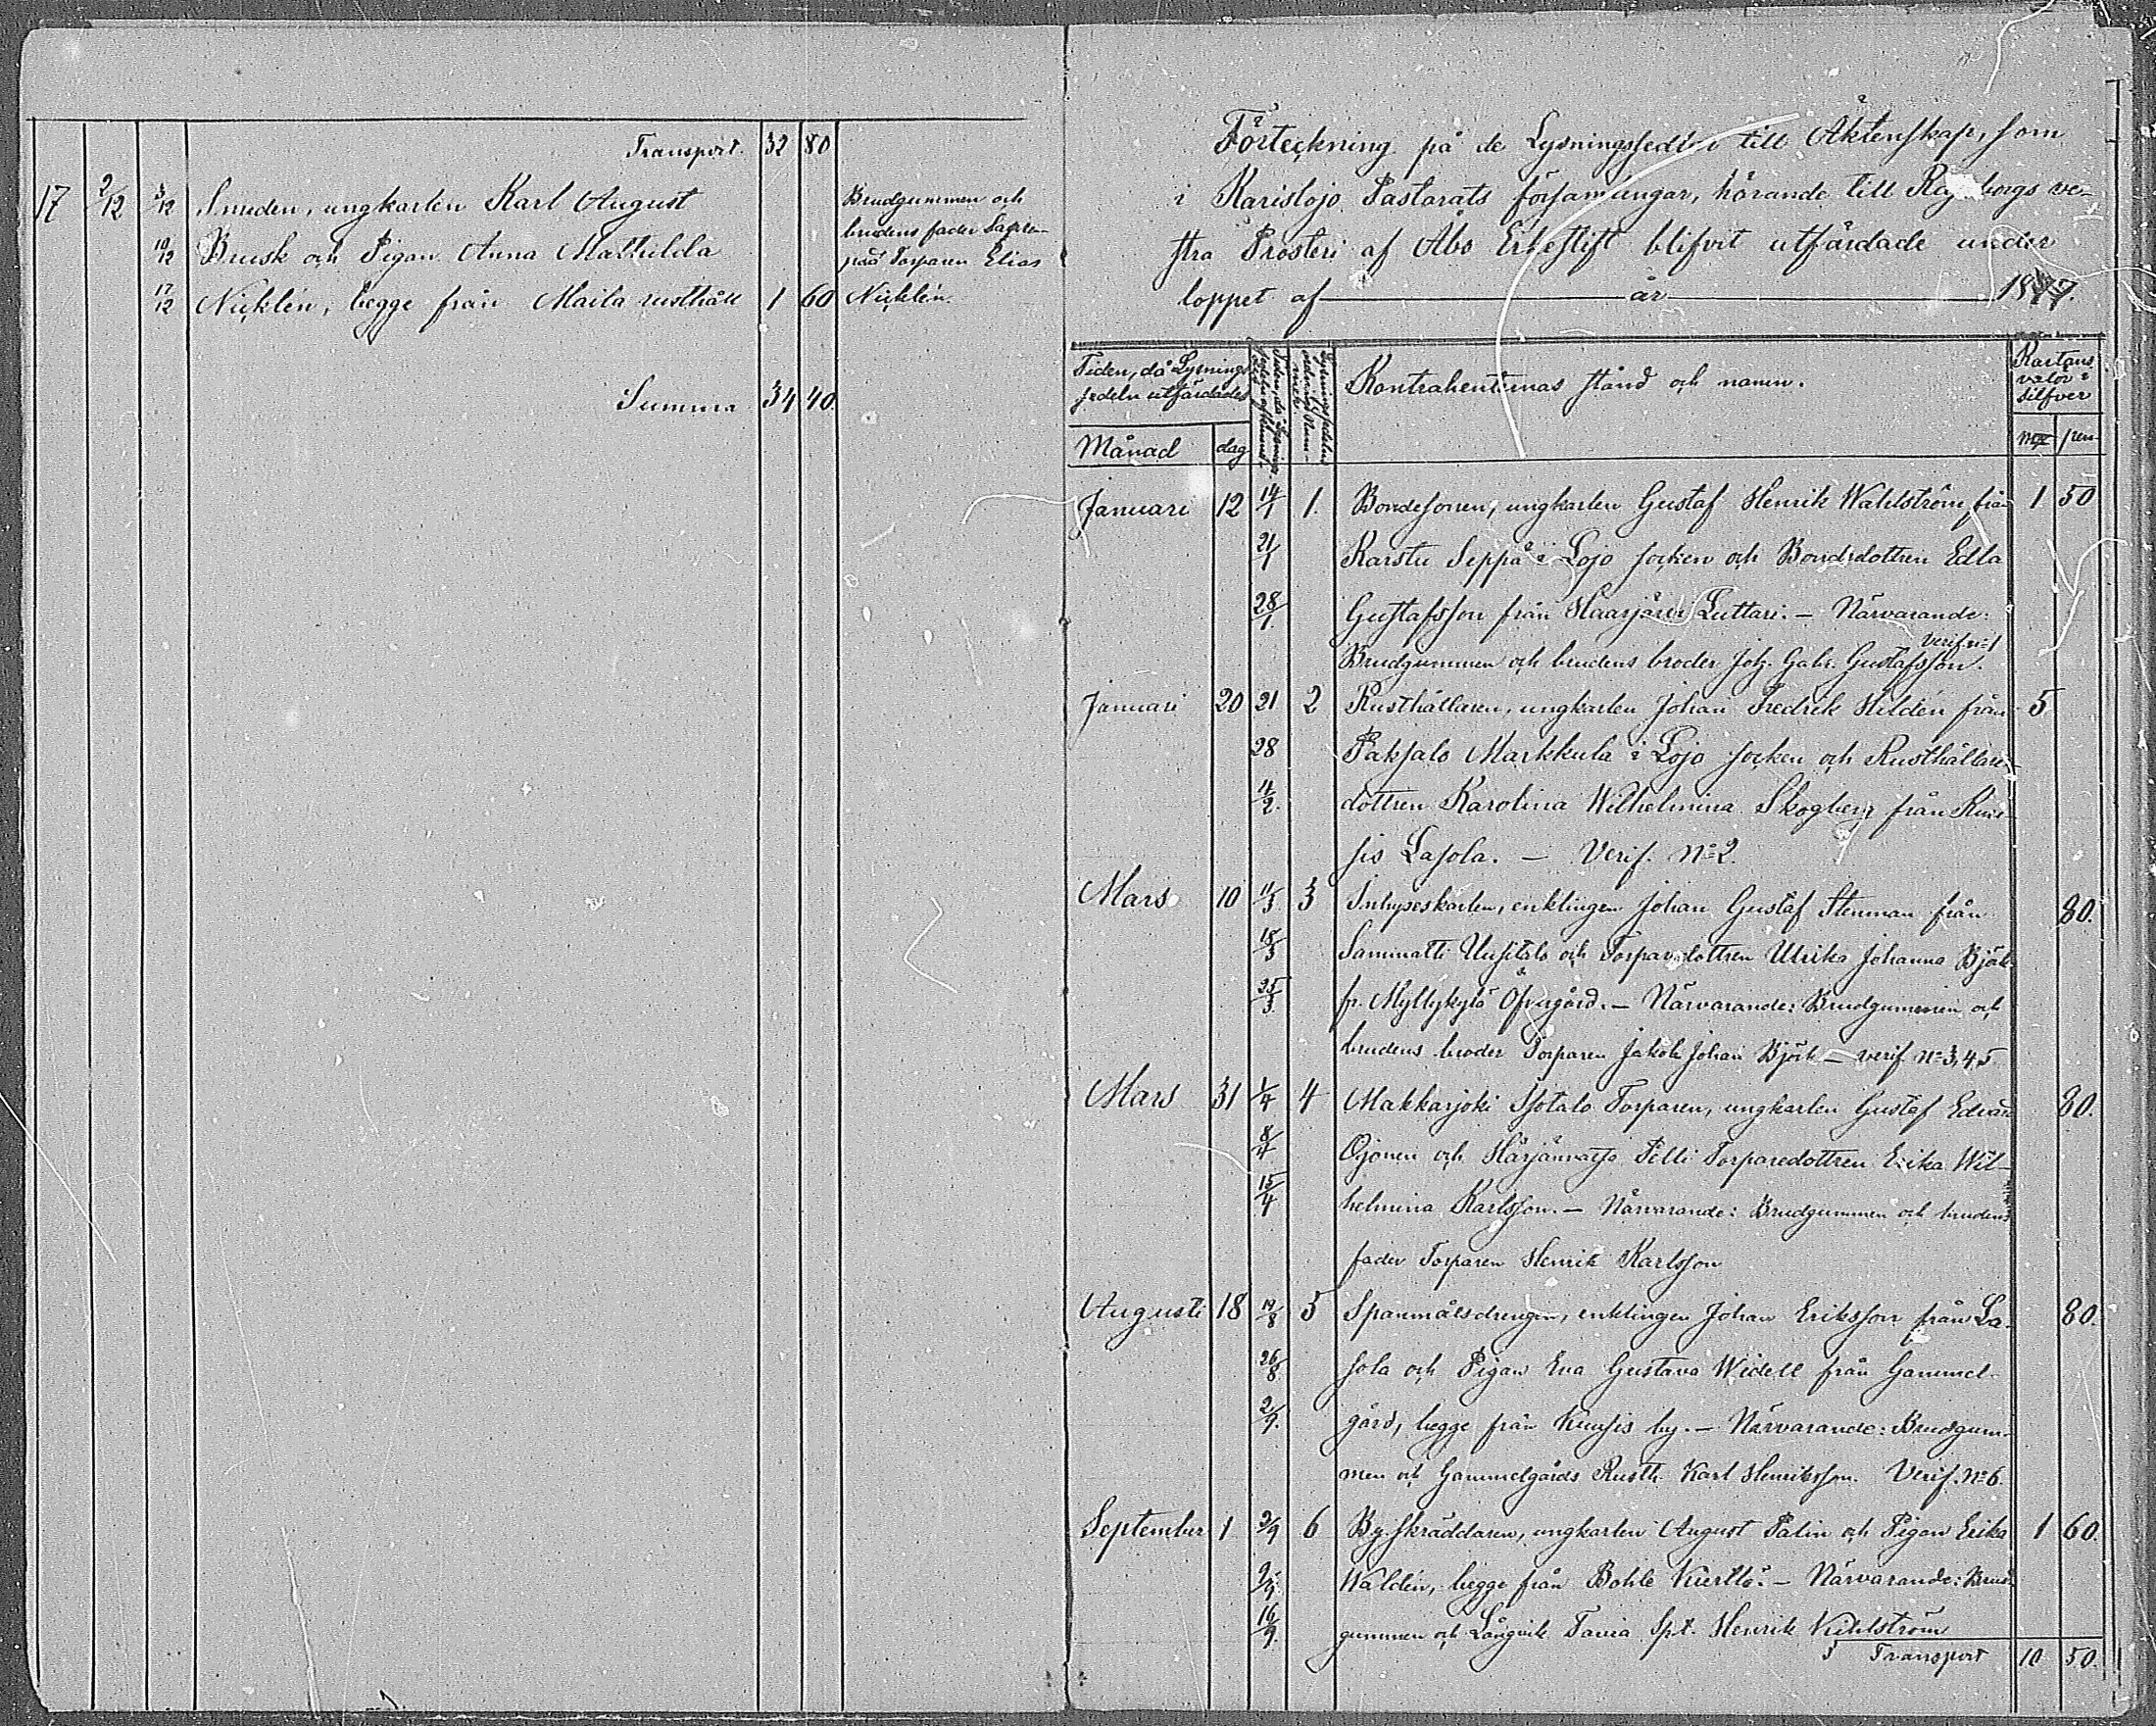 Transport. 32 80
17 2/12 3/12 Smeden, ungkarlen Karl August
10/12 Brusk och Pigan Anna Mathilda
17/12 Nicklén, begge från Maila rusthåll 1 60
Brudgummen och
brudens fader
Torparen Elias
Nicklén.
Summa 34 40.
Förteckning på de Lysningssedlar till Äktenskap, som
i Karislojo Pastorats församlingar, hörande till Raseborgs ve-
stra Prosteri af Åbo Erkestift blifvit utfärdade under
loppet af år 1877.
Tiden, då Lysnings
sedeln utfärdades
Månad dag
Kontrahenternas stånd och namn.
Kartans
valör i
silfver
mk pen
Januari 12 14/1 1. Bondesonen, ungkarlen Gustaf Henrik Wahlström från 1 50
21/1 Karstu Seppä i Lojo socken och Bondedottren Edla
28/1. Gustafsson från Haarjärvi Luttari. — Närvarande:
Verif. n=1
Brudgummen och brudens broder Joh. Gabr. Gustafsson.
Januari 20 21 2 Rusthållaren, ungkarlen Johan Fredrik Hildén från 5
28 Paksalo Markkula i Lojo socken och Rusthållare-
4/2. dottren Karolina Wilhelmina Skogberg från Kuu-
sis Lasola. — Verif. N=2.
Mars 10 11/3 3 Inhyseskarlen, enklingen Johan Gustaf Stenman från 80.
18/3 Sammatti Uusitalo och Torparedottren Ulrika Johanna Björk
25/3. fr. Myllykylä Öfvergård. — Närvarande: Brudgummen och
brudens broder Torparen Jakob Johan Björk — verif N=3,4,5
Mars 31 1/4 4 Makkarjoki Isotalo Torparen, ungkarlen Gustaf Edvard 80.
8/4 Ojonen och Härjänvatsa Pelli Torparedottren Erika Wil-
15/4 helmina Karlsson. — Närvarande: Brudgummen och brudens
fader Torparen Henrik Karlsson
Augusti 18 19/8 5 Spanmålsdrengen, enklingen Johan Eriksson från La- 80.
26/8 sola och Pigan Eva Gustava Widell från Gammel-
2/9. gård, begge från Kuusis by. — Närvarande: Brudgum-
men och Gammelgårds Rusth. Karl Henriksson. Verif. N=6.
September 1 2/9 6 Byskräddaren, ungkarlen August Palin och Pigan Erika 1 60.
9/9 Waldén, begge från Bohle Kuertto. — Närvarande: Brud-
16/9. gummen och Långvik Henrik Kihlström
Transport 10 50.